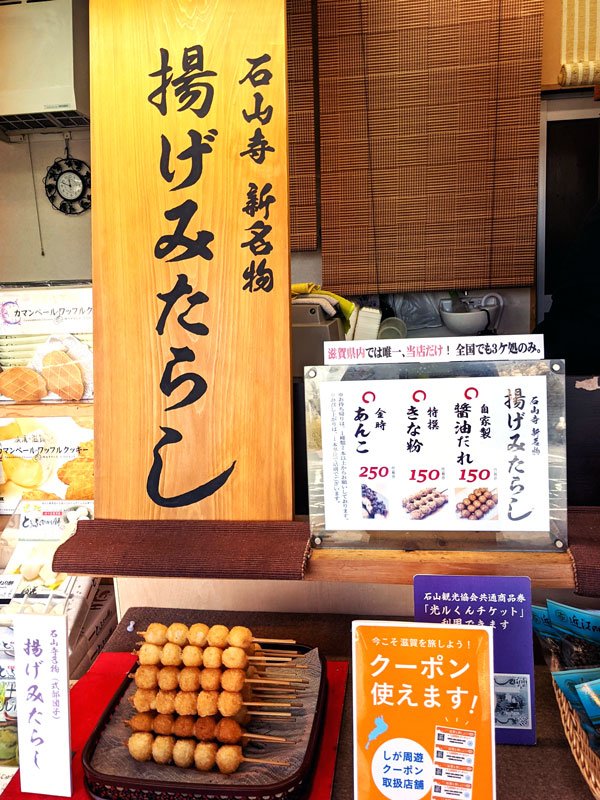 石山寺 新名物
揚げみたらし
滋賀県内では唯一、当店だけ! 全国でも3ケ処のみ。
石山寺 新名物
揚げみたらし
自家製
醤油だれ
150
特撰
きな粉
150
金時
あんこ
250
カマンベールワッフルク
カマンベールワッフルクッキー
石山寺名物
揚げみたらし
石山観光協会共通商品券
「光ルくんチケット」
利用できます
今こそ滋賀を旅しよう!
クーポン
使えます!
しが周遊
クーポン
取扱店舗